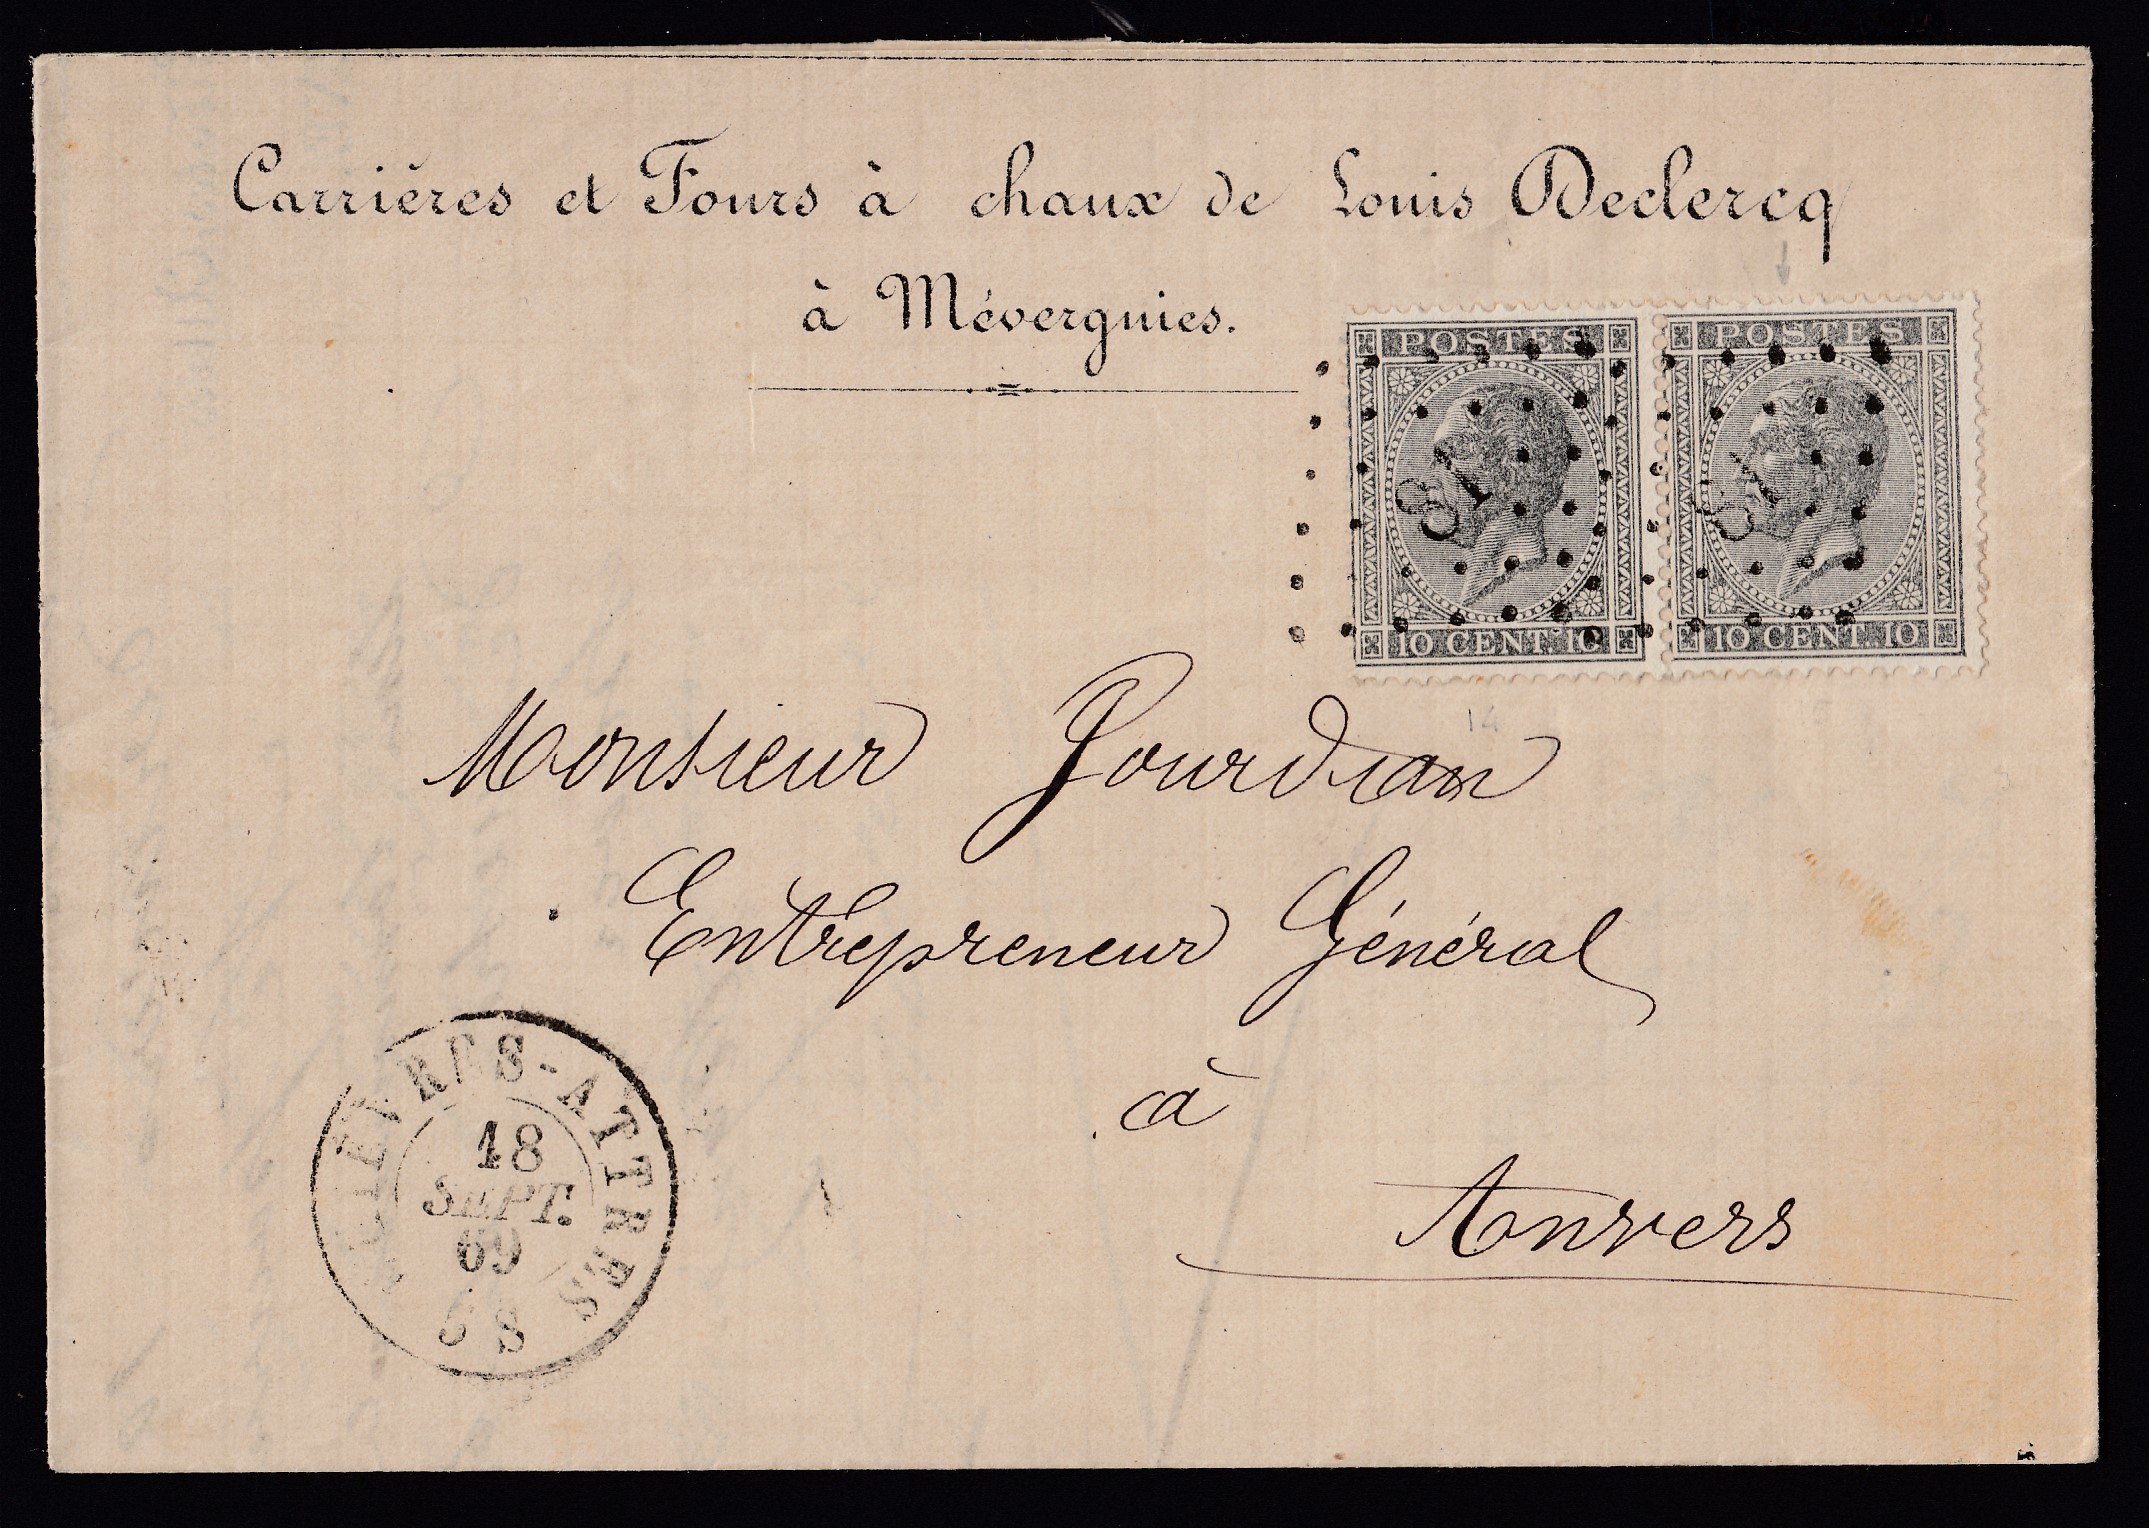 Carrières et Fours à chaux de Louis Declercq
à Mévergnies.
POSTES POSTES
81 81
10 CENT. 10 10 CENT. 10
14
Monsieur Jourdan
Entrepreneur Général
à
Anvers
-ATTRES
18
SEPT.
69